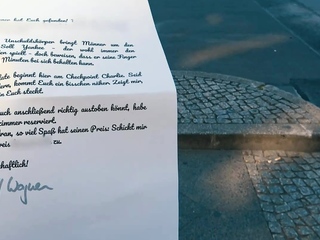 hat Euch gefunden?
Unschuldskörper bringt Männer um den
Sell Yankee - der wohl immer den
spielt - doch beweisen, dass er seine Finger
Minuten bei sich behalten kann.
beginnt hier am Checkpoint Charlie. Seid
kommt Euch ein bisschen näher. Zeigt mir,
in Euch steckt.
auch anschließend richtig austoben könnt, habe
zimmer reserviert.
ran, so viel Spaß hat seinen Preis: Schickt mir
reis zu.
haftlich!
Wagner